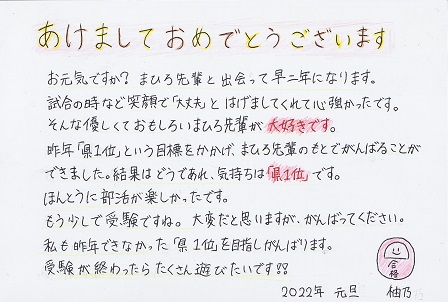 あけましておめでとうございます
お元気ですか？まひろ先輩と出会って早二年になります。
試合の時など笑顔で「大丈夫」とはげましてくれて心強かったです。
そんな優しくておもしろいまひろ先輩が大好きです。
昨年「県1位」という目標をかかげ、まひろ先輩のもとでがんばることが
できました。結果はどうであれ、気持ちは「県1位」です。
ほんとうに部活が楽しかったです。
もう少しで受験ですね。大変だと思いますが、がんばってください。
私も昨年できなかった「県1位」を目指しがんばります。
受験が終わったらたくさん遊びたいです!!
合格
2022年 元旦 柚乃